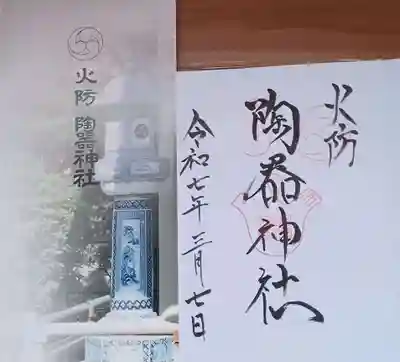 火防 陶器神社
火防
陶器神社
令和七年三月七日